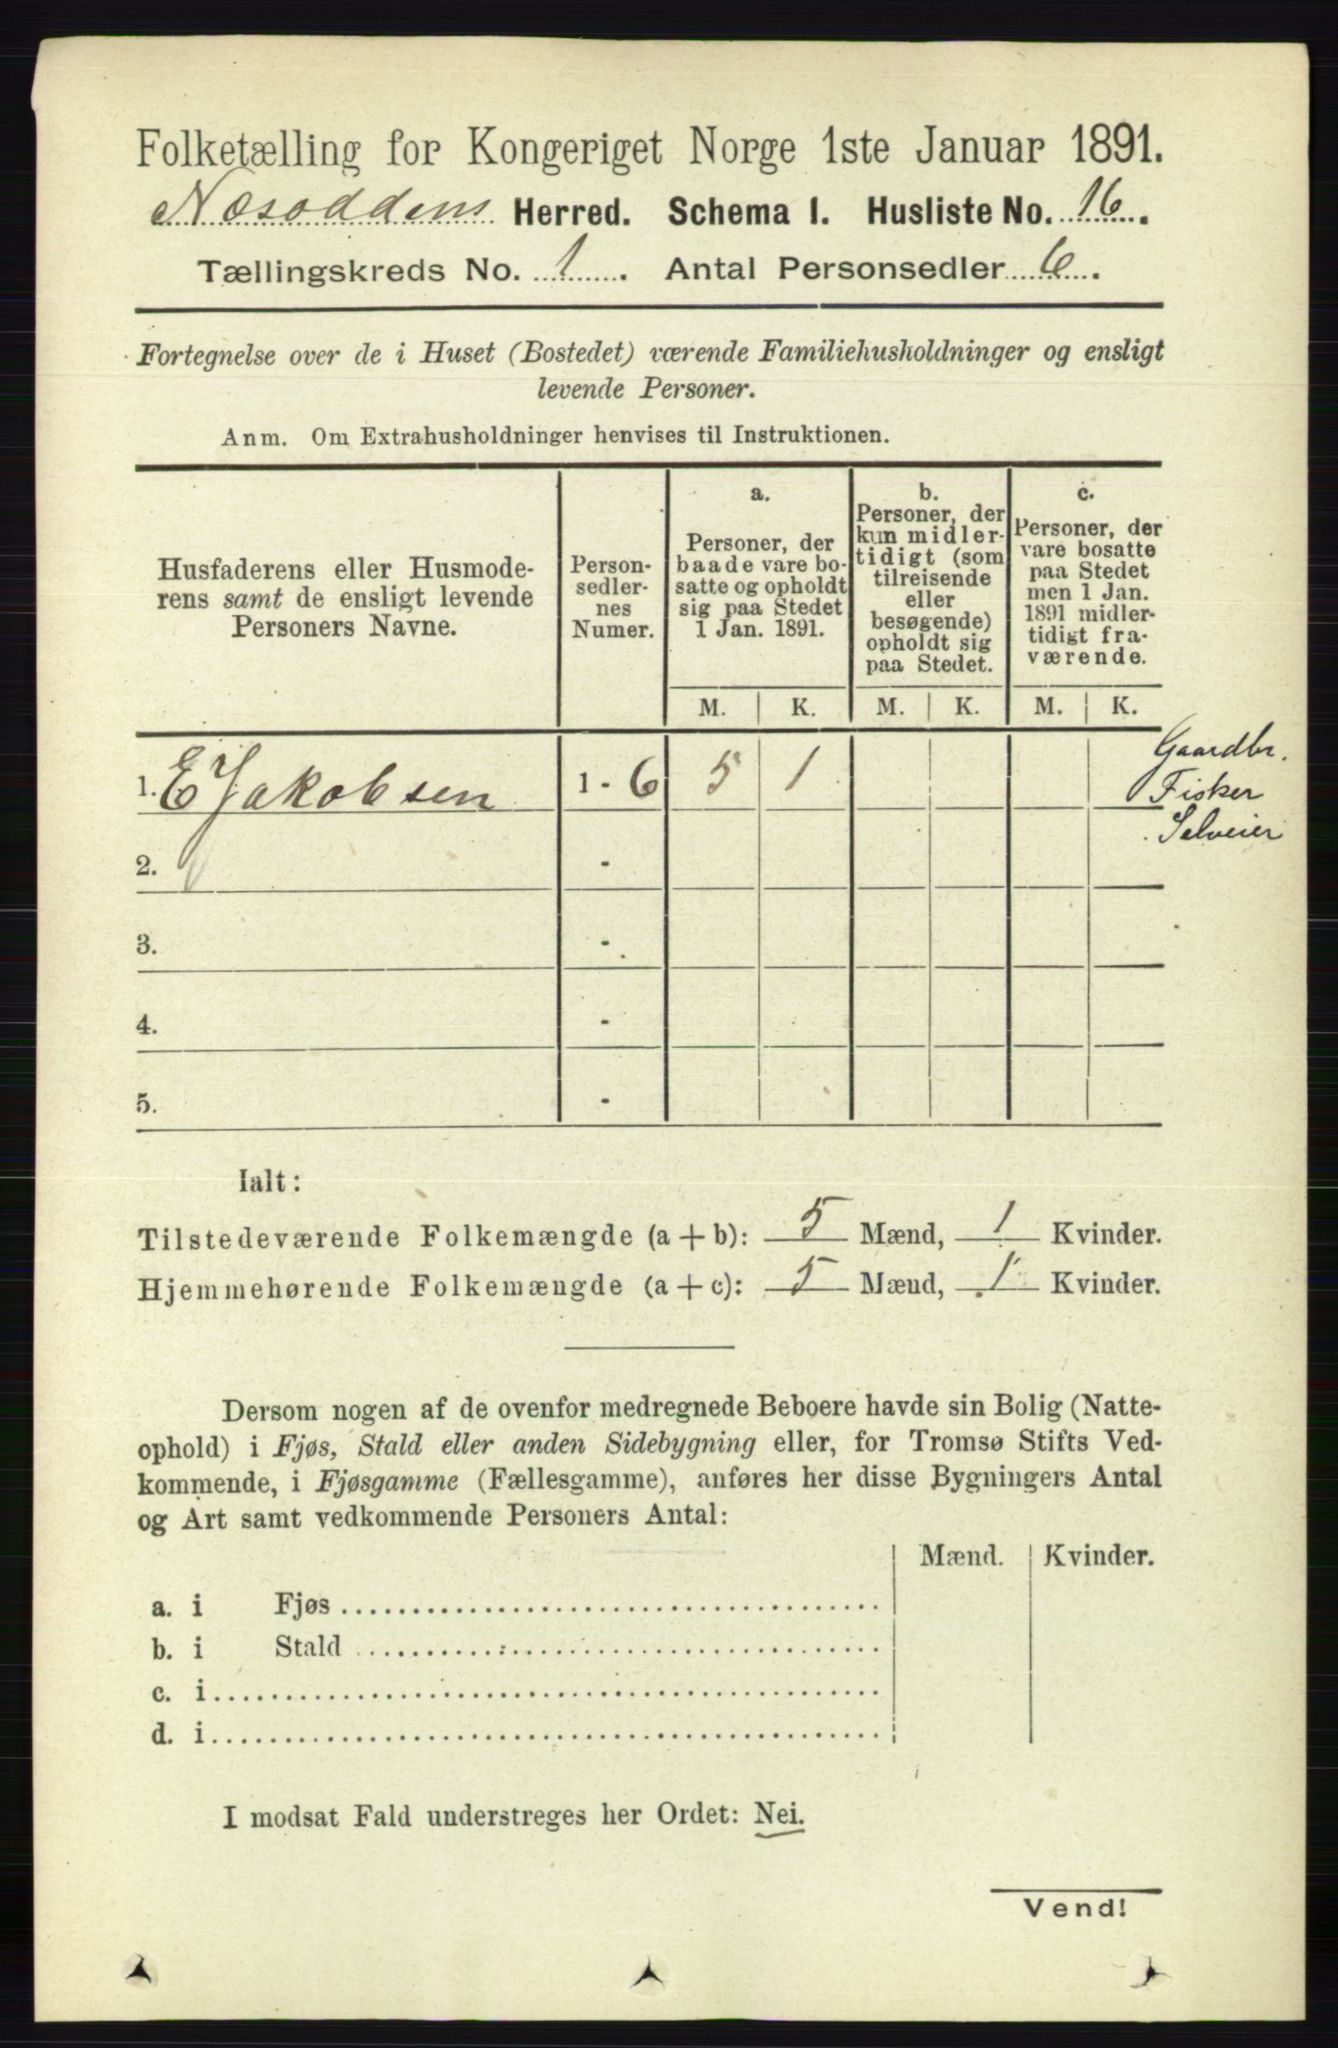 Folketælling for Kongeriget Norge 1ste Januar 1891.
Næsoddens Herred. Schema I. Husliste No. 16.
Tællingskreds No. 1. Antal Personsedler 6.
Fortegnelse over de i Huset (Bostedet) værende Familiehusholdninger og ensligt
levende Personer.
Anm. Om Extrahusholdninger henvises til Instruktionen.
Husfaderens eller Husmode-
rens samt de ensligt levende
Personers Navne.
Person-
sedler-
nes
Numer.
a.
Personer, der
baade vare bo-
satte og opholdt
sig paa Stedet
1 Jan. 1891.
b.
Personer, der
kun midler-
tidigt (som
tilreisende
eller
besøgende)
opholdt sig
paa Stedet.
c.
Personer, der
vare bosatte
paa Stedet
men 1 Jan.
1891 midler-
tidigt fra-
værende.
M. K. M. K. M. K.
1. E Jakobsen 1 - 6 5 1
Gaardbr.
Fisker
Selveier
2. -
3. -
4. -
5. -
Ialt:
Tilstedeværende Folkemængde (a + b): 5 Mænd, 1 Kvinder.
Hjemmehørende Folkemængde (a + c): 5 Mænd, 1 Kvinder.
Dersom nogen af de ovenfor medregnede Beboere havde sin Bolig (Natte-
ophold) i Fjøs, Stald eller anden Sidebygning eller, for Tromsø Stifts Ved-
kommende, i Fjøsgamme (Fællesgamme), anføres her disse Bygningers Antal
og Art samt vedkommende Personers Antal:
Mænd. Kvinder.
a. i Fjøs
b. i Stald
c. i
d. i
I modsat Fald understreges her Ordet: Nei.
Vend!